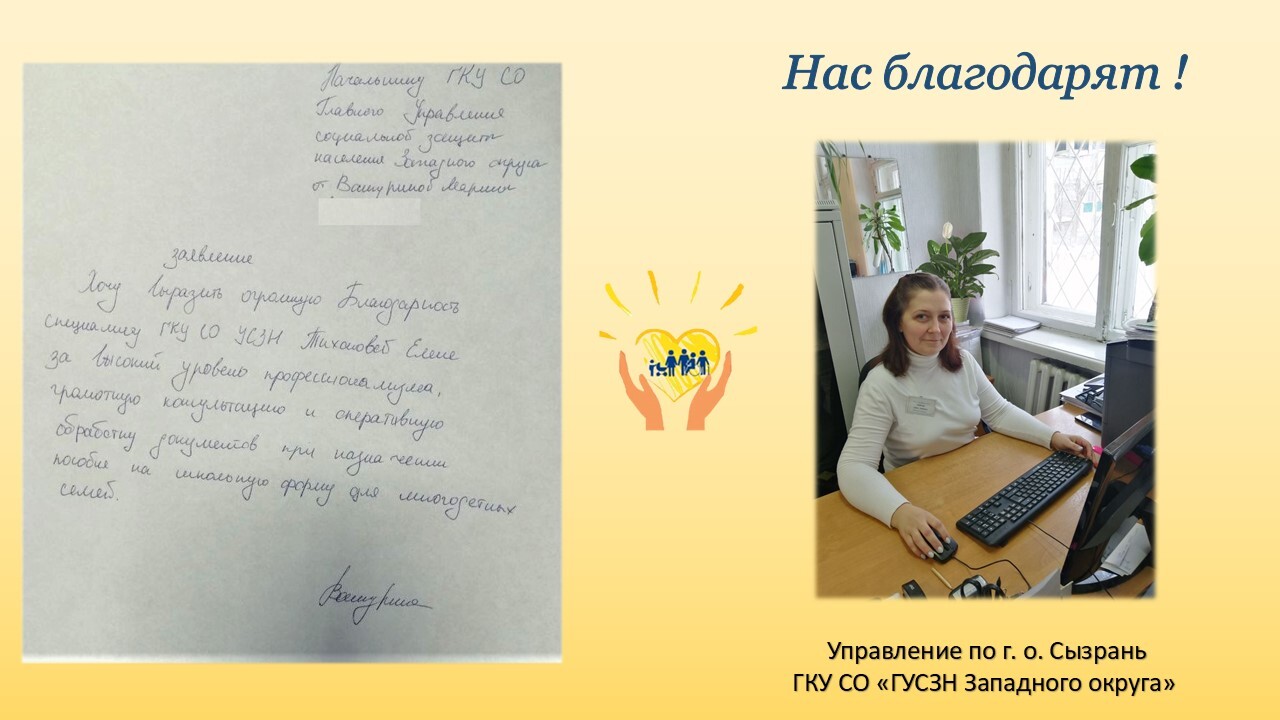 Начальнику ГКУ СО
Главного Управления
социальной защиты
населения Западного округа
от Вашуриной Марины
заявление
Хочу выразить огромную Благодарность
специалисту ГКУ СО УСЗН Тихоновой Елене
за высокий уровень профессионализма,
грамотную консультацию и оперативную
обработку документов при назначении
пособия на школьную форму для многодетных
семей.
Вашурина
Нас благодарят !
Управление по г. о. Сызрань
ГКУ СО «ГУСЗН Западного округа»